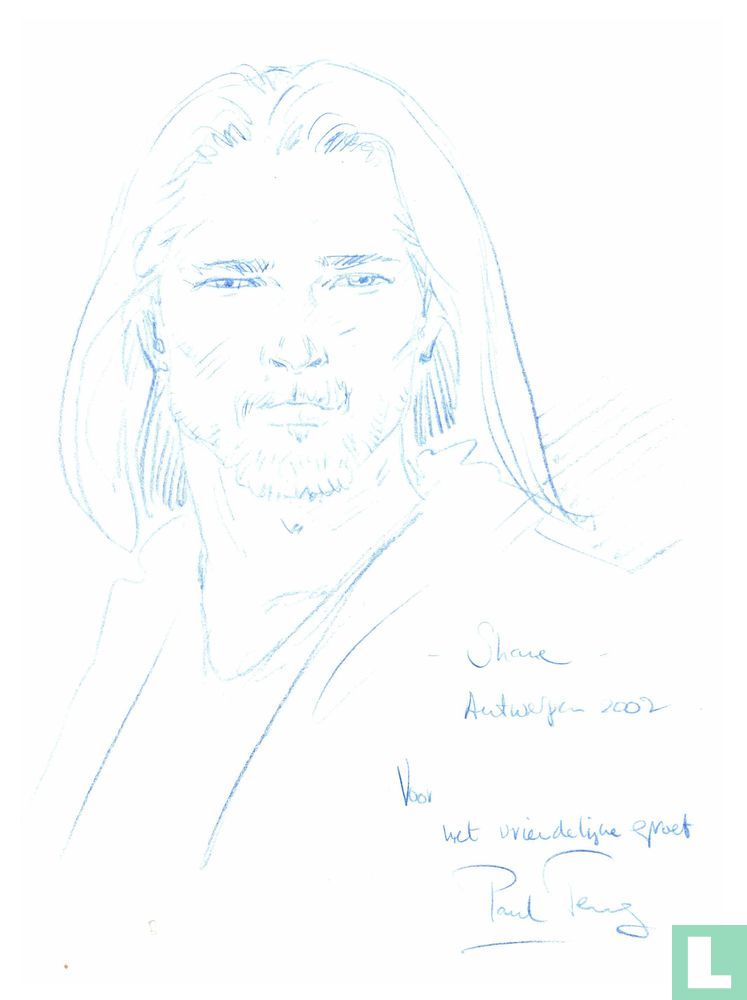 - Shane -
Antwerpen 2002
Voor
met vriendelijke groet
Paul Teng
L